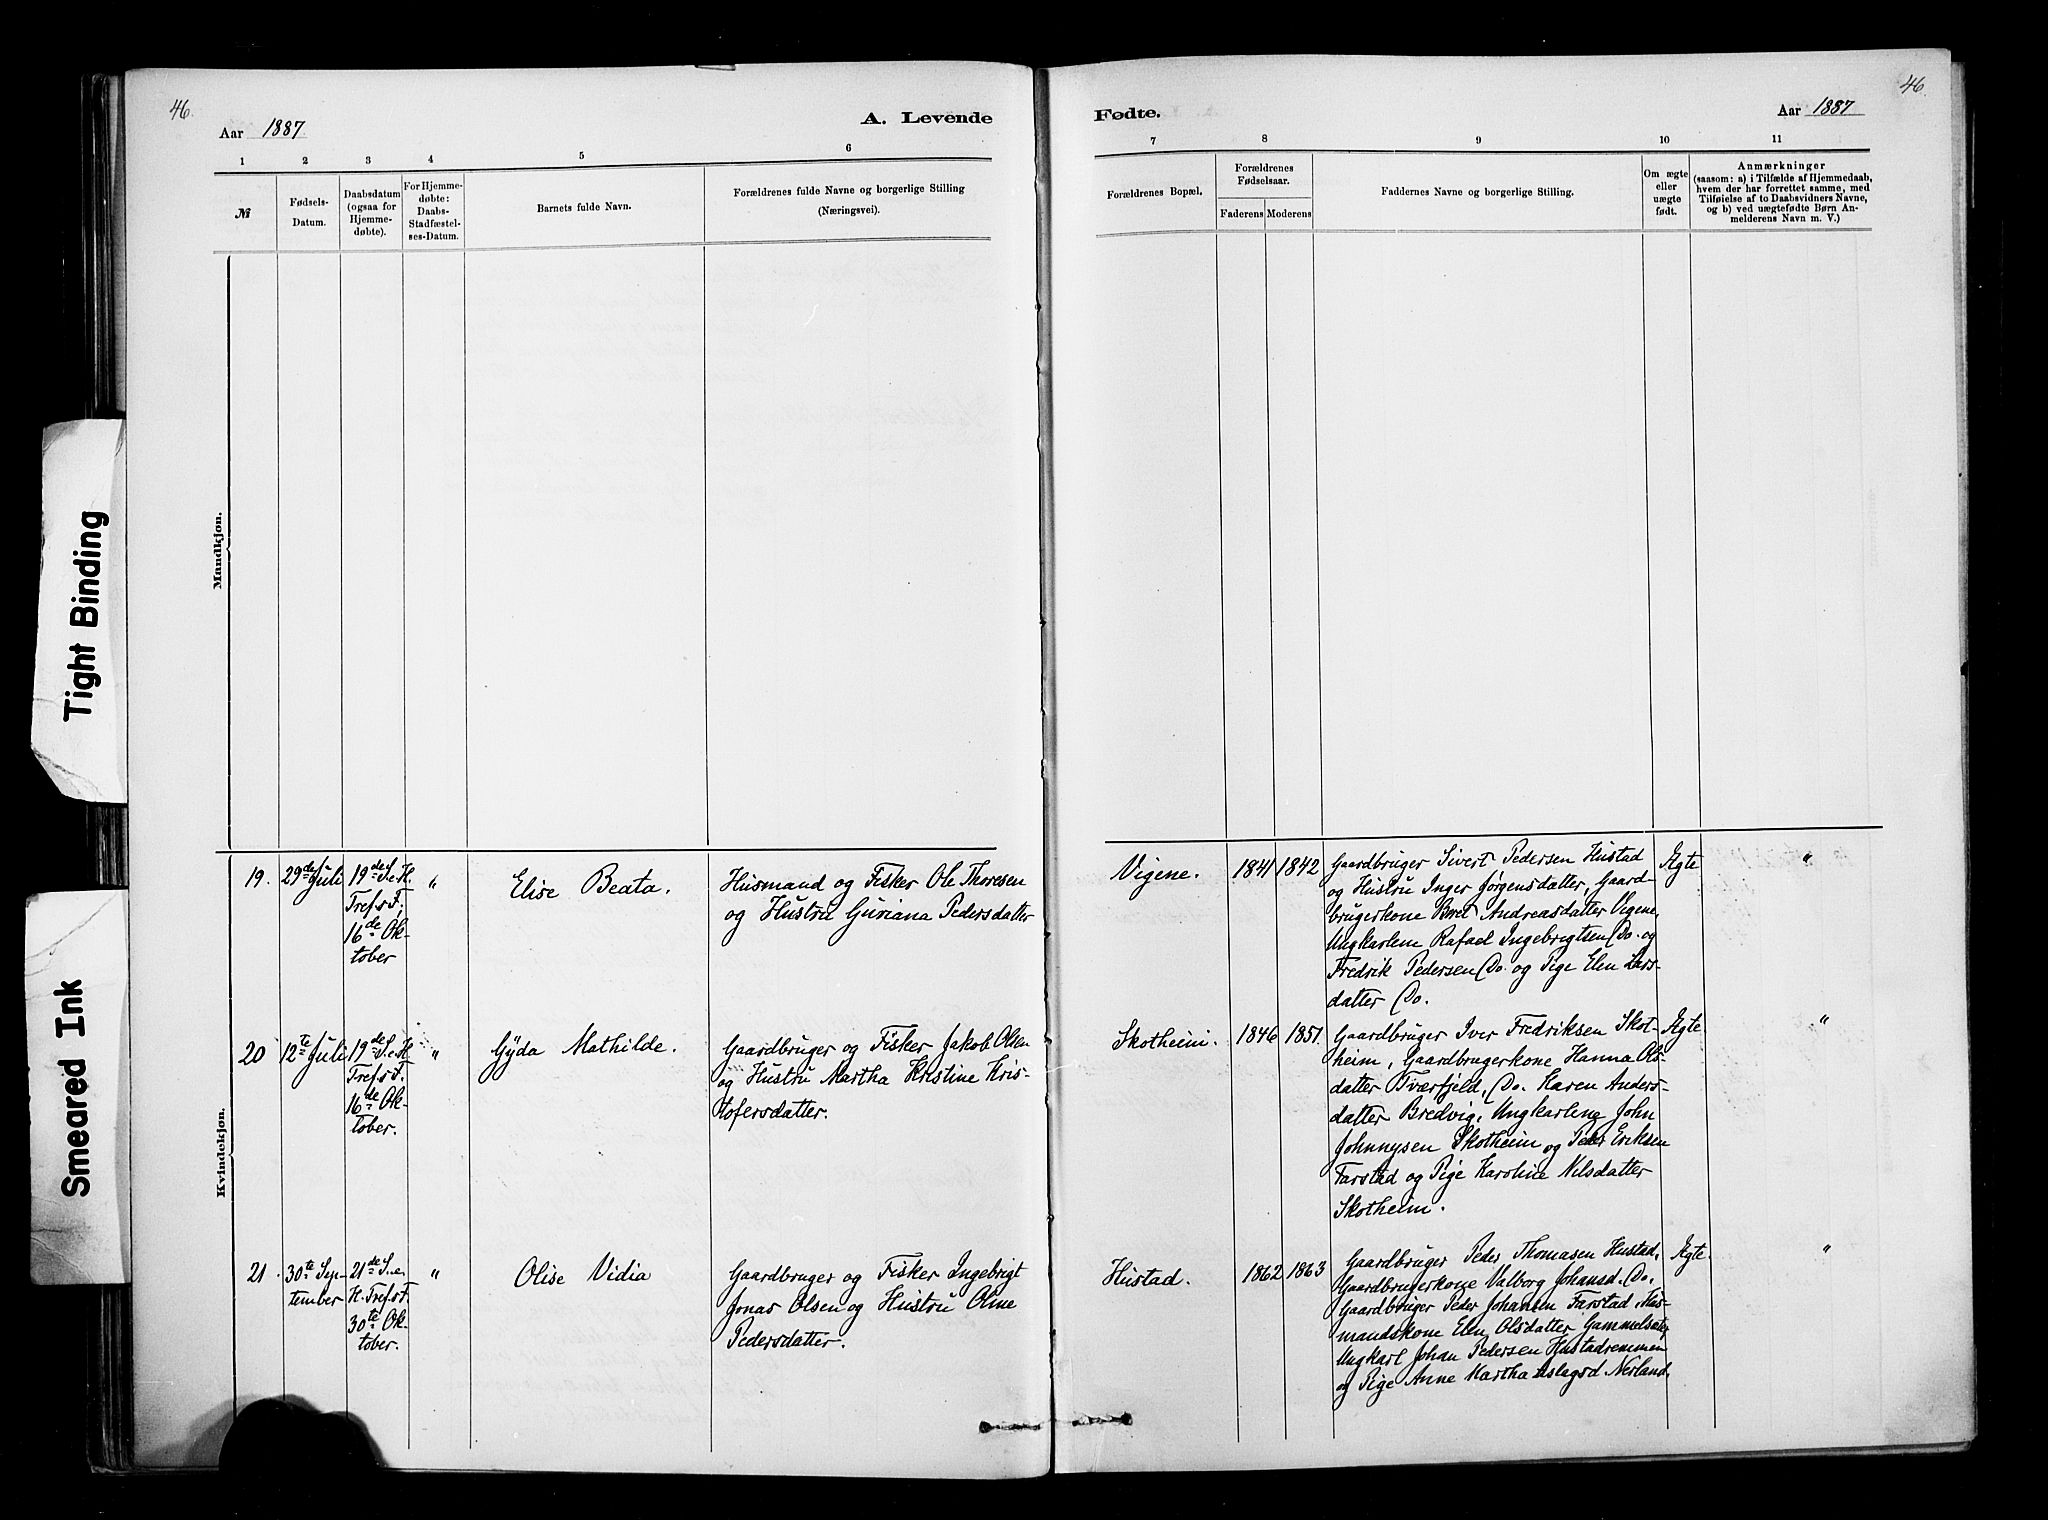 46.
Aar 1887
A. Levende
1 2 3 4 5 6
№
Fødsels-
Datum.
Daabsdatum
(ogsaa for
Hjemme-
døbte).
For Hjemme-
døbte:
Daabs-
Stadfæstel-
ses-Datum.
Barnets fulde Navn.
Forældrenes fulde Navne og borgerlige Stilling
(Næringsvei).
Mandkjøn.
Kvindekjøn.
19.
29de Juli
19de S. e. H.
Tref. s F.
16de Ok-
tober
"
Elise Beata.
Husmand og Fisker Ole Thoresen
og Hustru Guriana Pedersdatter
20
12te Juli
19de S. e. H
Tref. s F.
16de Ok-
tober.
"
Gyda Mathilde.
Gaardbruger og Fisker Jakob Olsen
og Hustru Martha Kristine Kris-
tofersdatter.
21.
30te Sep-
tember
21de S. e.
H. Tref. s F.
30te Ok-
tober.
"
Olise Vidia
Gaardbruger og Fisker Ingebrigt
Jonas Olsen og Hustru Oline
Pedersdatter.
46.
Fødte.
Aar 1887
7 8 9 10 11
Forældrenes Bopæl.
Forældrenes
Fødselsaar.
Faderens Moderens
Faddernes Navne og borgerlige Stilling.
Om ægte
eller
uægte
født.
Anmærkninger
(saasom: a) i Tilfælde af Hjemmedaab,
hvem der har forrettet samme, med
Tilføielse af to Daabsvidners Navne,
og b) ved uægtefødte Børn An-
melderens Navn m. V.)
Vigene.
1841 1842
Gaardbruger Sivert Pedersen Hustad
og Hustru Inger Jørgensdatter, Gaard-
brugerkone Bret Andreasdatter Vigene,
Ungkarlene Rafael Ingebrigtsen Do. og
Fredrik Pedersen Do. og Pige Elen Lars-
datter Do.
Ægte
"
Skotheim.
1846 1851
Gaardbruger Iver Fredriksen Skot-
heim, Gaardbrugerkone Hanna Ols-
datter Tværfjeld, Do. Karen Anders-
datter Bredvig, Ungkarlene John
Johnnysen Skotheim og Peder Eriksen
Farstad og Pige Karoline Nilsdatter
Skotheim.
Ægte
"
Hustad.
1862 1863
Gaardbruger Peder Thomasen Hustad,
Gaardbrugerkone Valborg Johansd. Do.,
Gaardbruger Peder Johansen Farstad, Hus-
mandskone Elen Olsdatter Gammelsæter,
Ungkarl Johan Pedersen Hustadremmen
og Pige Anne Martha Aslagsd. Nerland.
Ægte.
"
Tight Binding
Smeared Ink